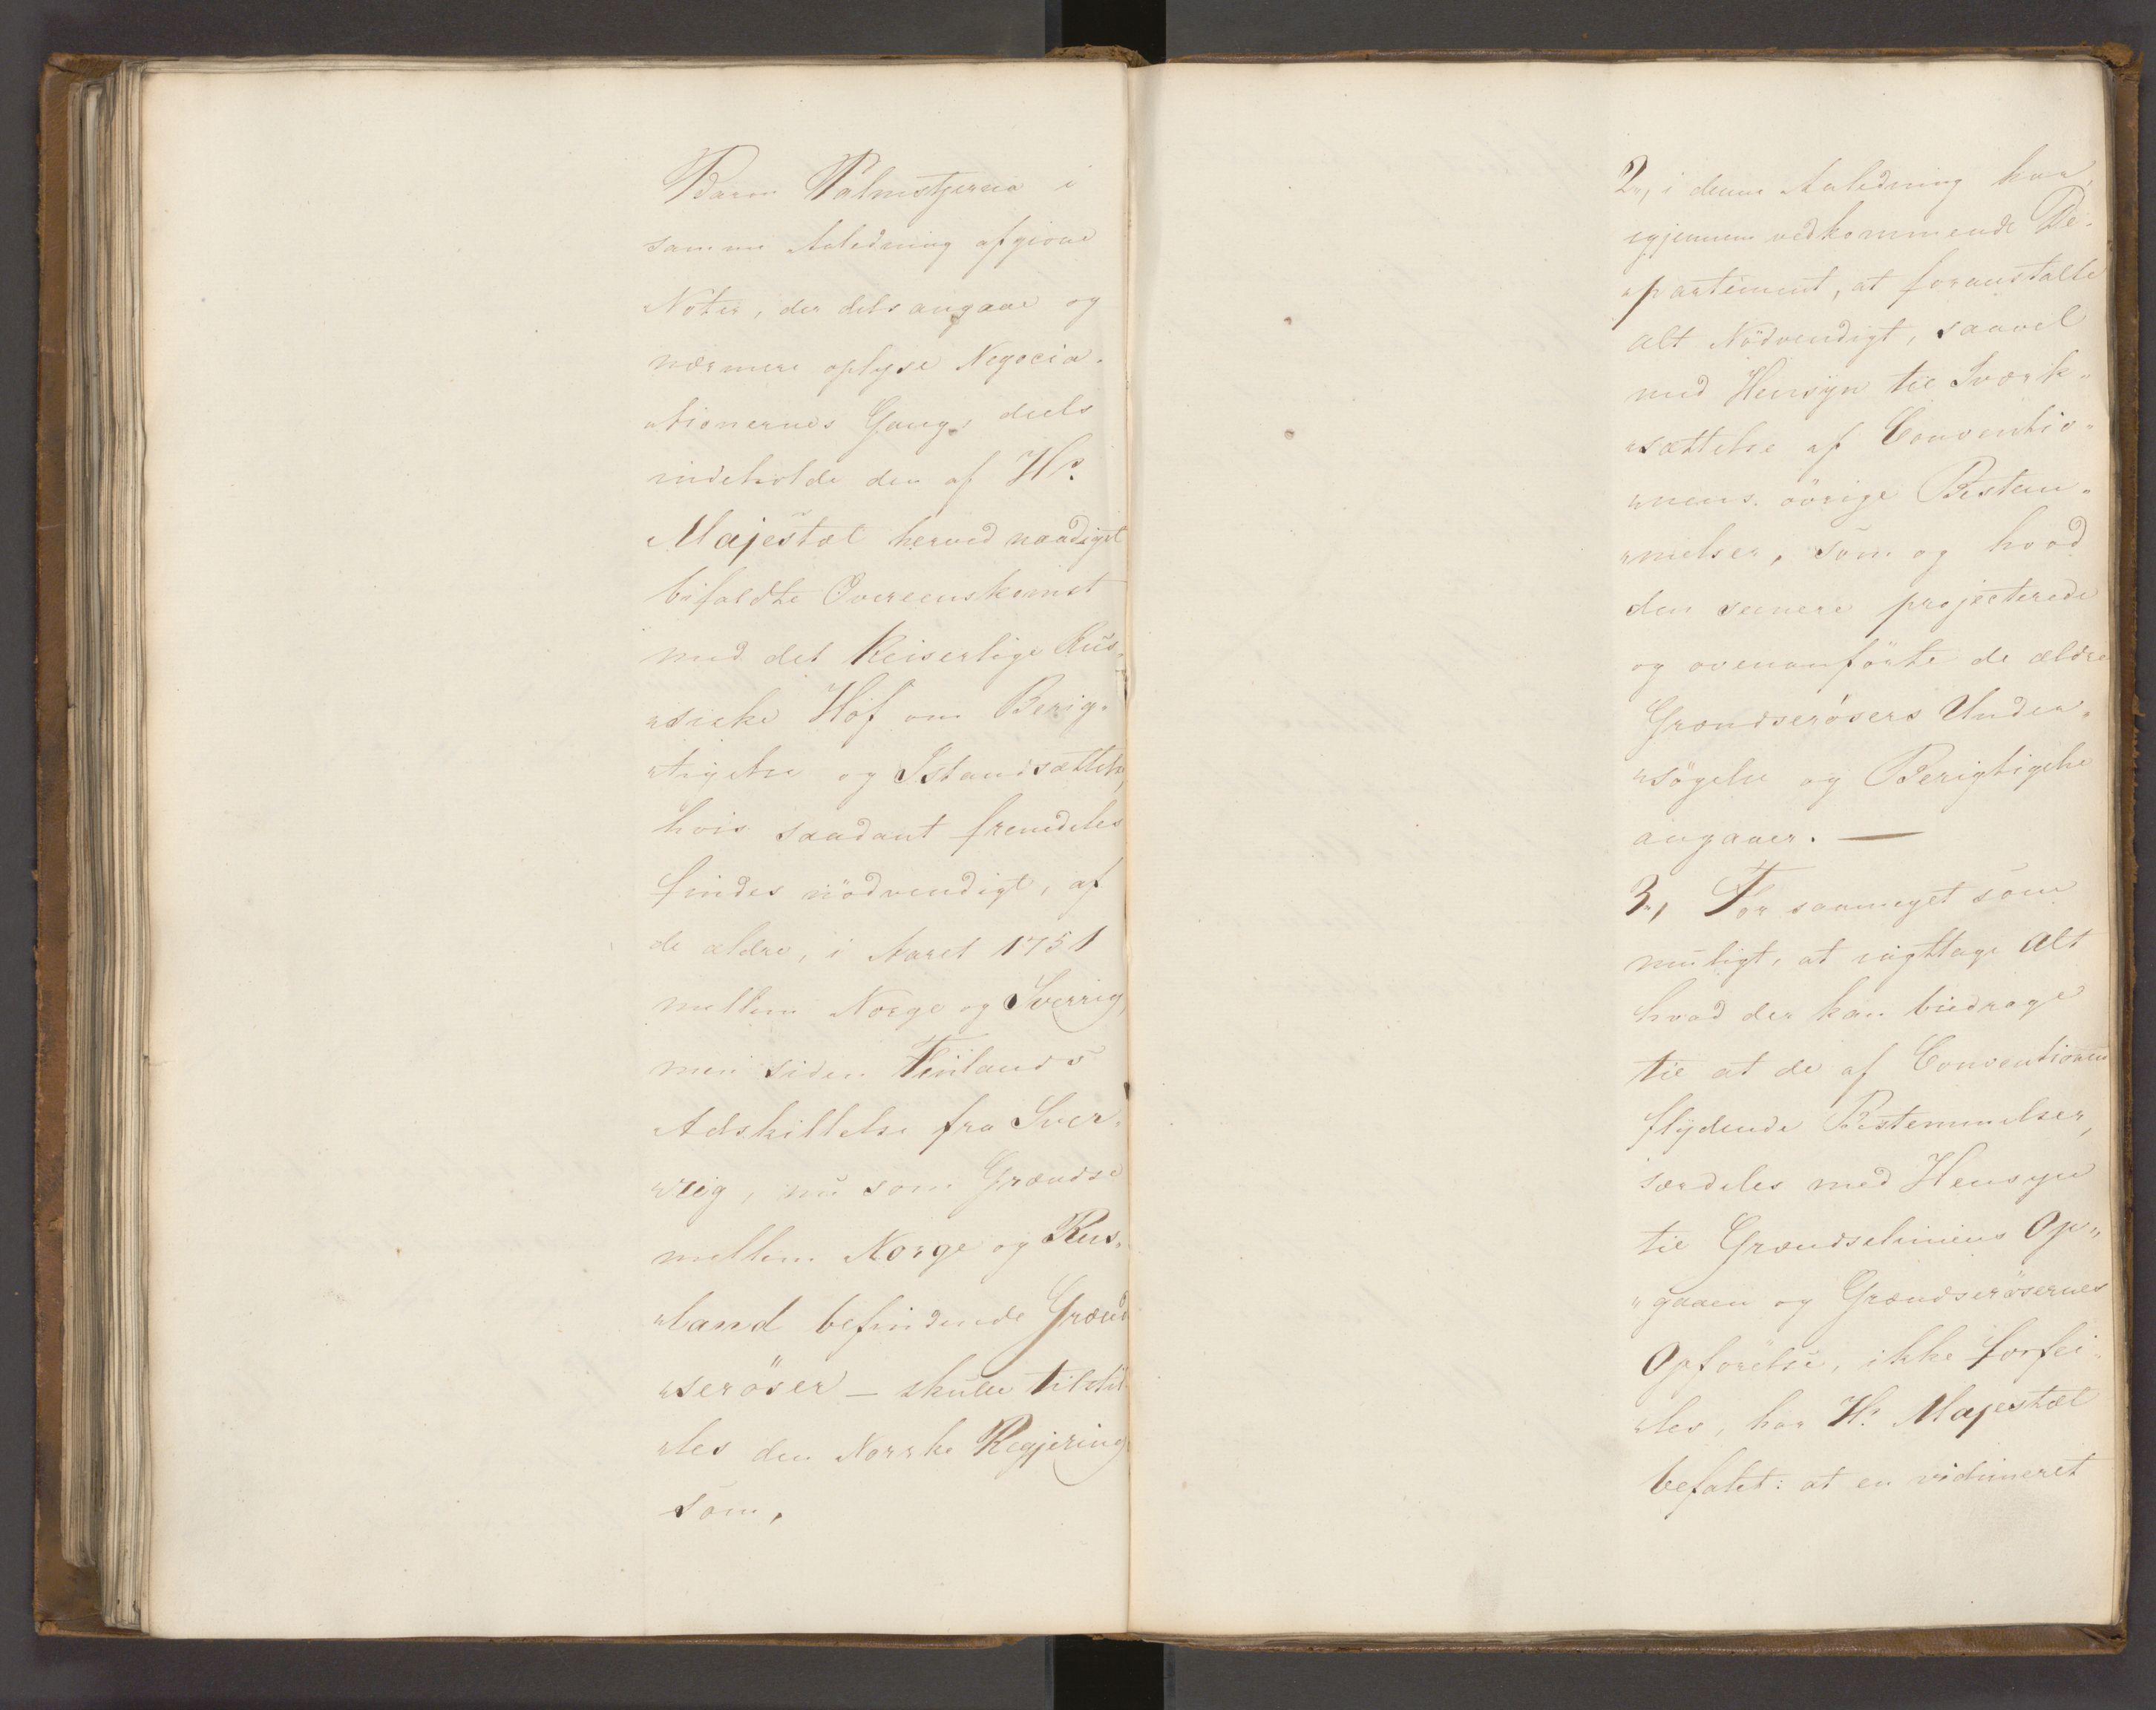 Baron Palmstjerna i
samme Anledning afgivne
Noter, der dels angaae og
nærmere oplyse Negocia„
„tionernes Gang, deels
indeholde den af Hs.
Majestæt herved naadigst
bifaldte Overeenskomst
med det Keiserlige Rus„
„siske Hof om Berig„
„tigelse og Istandsættelse,
hvis saadant fremdeles
findes nödvendigt, af
de ældre, i Aaret 1751
mellem Norge og Sverrig,
men siden Finlands
Adskillelse fra Sver„
„rig, nu som Grændse
mellem Norge og Rus„
„land befindende Grænd
„seröser – skulle tilstil
„les den Norske Regjering
som,
2„, i denne Anledning har,
igjennem vedkommende De„
„partement, at foranstalte
alt Nödvendigt, saavel
med Hensyn til Iværk„
„sættelse af Conventio„
„nens övrige Bestem„
„melser, som og hvad
den senere projecterede
og ovenanförte de ældre
Grændserösers Under„
„sögelse og Berigtigelse
angaaer. —
3„, For saameget som
muligt, at iagttage alt
hvad der kan bidrage
til at de af Conventionen
flydende Bestemmelser,
særdeles med Hensyn
til Grændseliniens Op„
„gaaen og Grændserösernes
Opförelse, ikke forfei„
„les, har Hs. Majestæt
befalet: at en vidimeret